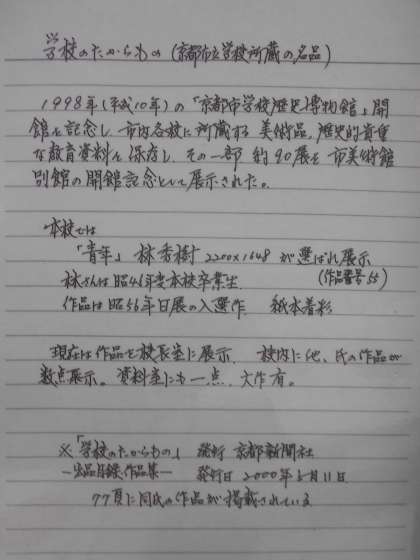 学校のたからもの (京都市立学校所蔵の名品)
1998年(平成10年)の「京都市学校歴史博物館」開
館を記念し、市内各校に所蔵する美術品、歴史的貴重
な教育資料を保存し、その一部 約90展を市美術館
別館の開館記念として展示された。
・本校では
「青年」 林 秀樹 2200×1648 が選ばれ展示
(作品番号55)
林さんは昭46年度本校卒業生
作品は昭56年日展の入選作 紙本着彩
現在は作品を校長室に展示、校内に他、氏の作品が
数点展示。資料室にも一点、大作有。
※「学校のたからもの」 発行 京都新聞社
―出品目録、作品集― 発行日 2000年3月11日
77頁に同氏の作品が掲載されている